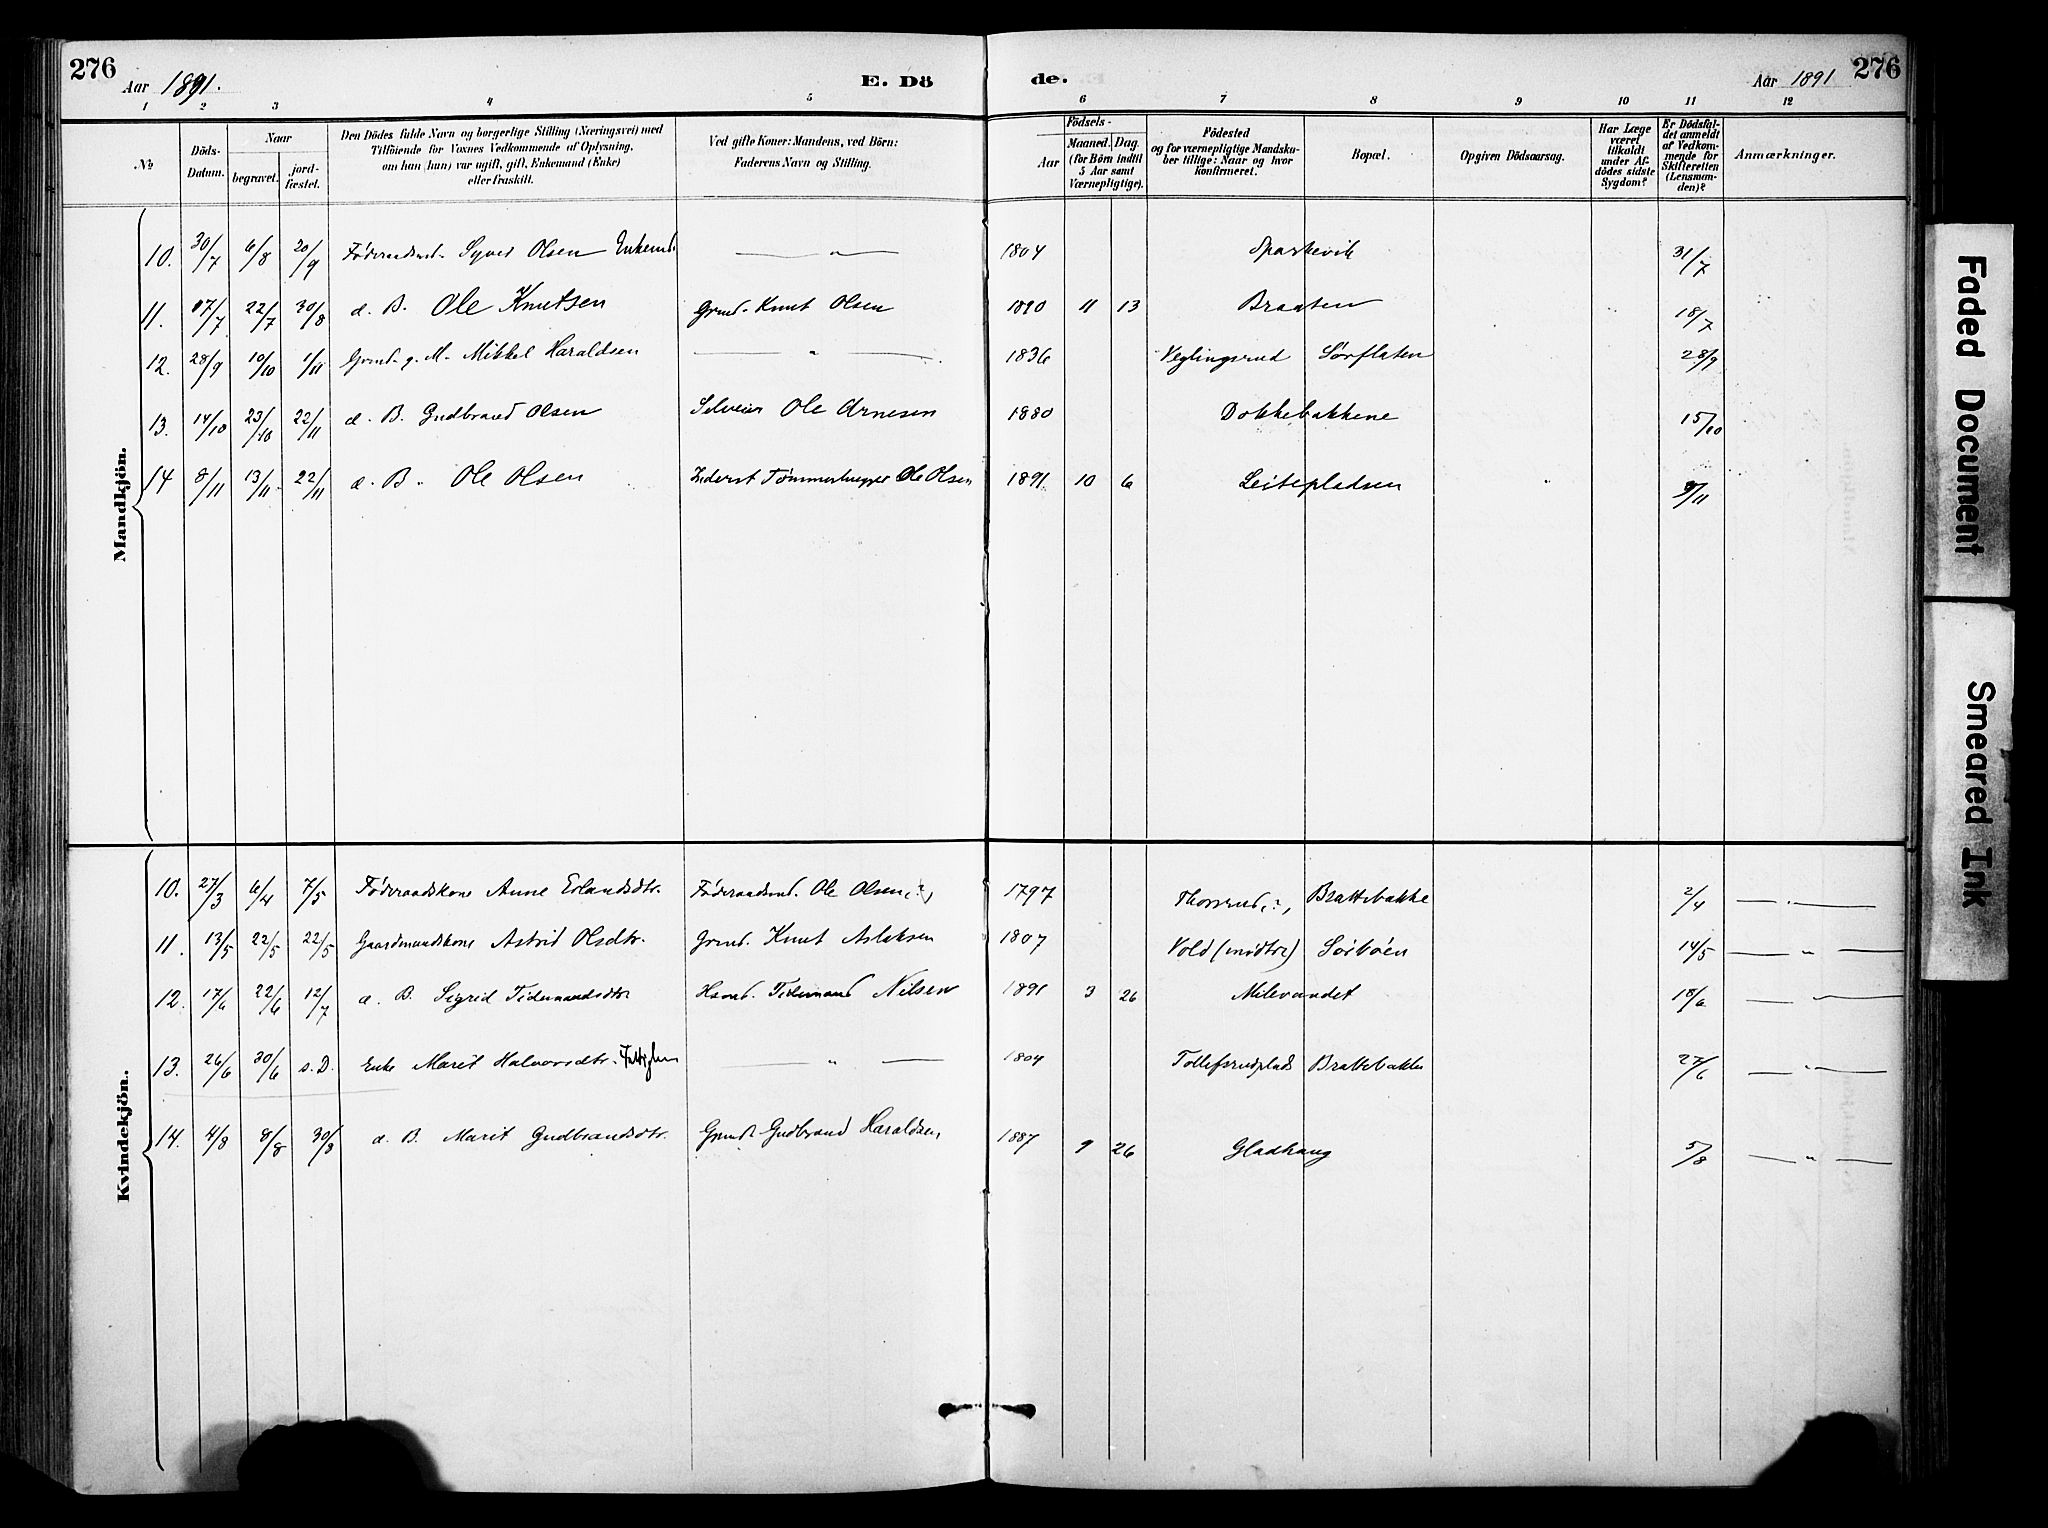 276
Aar 1891.
E. Dö
de.
Aar 1891
276
1 2 3 4 5 6 7 8 9 10 11 12
No
Döds-Datum.
Naar
begravet.
jord-fæstet.
Den Dödes fulde Navn og borgerlige Stilling (Næringsvei) med
Tilföiende for Voxnes Vedkommende af Oplysning,
om han (hun) var ugift, gift, Enkemand (Enke)
eller fraskilt.
Ved gifte Koner: Mandens, ved Börn:
Faderens Navn og Stilling.
Födsels-
Aar
Maaned. Dag.
(for Börn indtil
5 Aar samt
Værnepligtige).
Födested
og for værnepligtige Mandska-
ber tillige: Naar og hvor
konfirmeret.
Bopæl.
Opgiven Dödsaarsag.
Har Læge
været
tilkaldt
under Af-
dödes sidste
Sygdom?
Er Dödsfal-
det anmeldt
af Vedkom-
mende for
Skifteretten
(Lensman-
den)?
Anmærkninger.
Mandkjön.
10. 30/7 6/8 20/9 Föderaadsmd. Syver Olsen Enkemd. — " — 1804 Sparkevik 31/7
11. 17/7 22/7 30/8 d. B. Ole Knutsen Grmd. Knut Olsen 1890 11 13 Braaten 18/7
12. 28/9 10/10 1/11 Grmd. g. M. Mikkel Haraldsen — " — 1836 Veglingsrud Sörflaten 28/9
13. 14/10 23/10 22/11 d. B. Gudbrand Olsen Selveier Ole Arnesen 1880 Dokkebakkene 15/10
14 8/11 13/11 22/11 d. B. Ole Olsen Inderst Tömmerhugger Ole Olsen 1891 10 6 Leitepladsen 9/11
Kvindekjön.
10. 27/3 6/4 7/5 Föderaadskone Anne Erlandsdtr. Föderaadsmd. Ole Olsen (?) 1797 Thorsrud (?) Brattebakke 2/4 — " —
11. 13/5 22/5 22/5 Gaardmandskone Astrid Olsdtr. Grmd. Knut Aslaksen 1807 Vold (midtre) Sörböen 14/5 — " —
12. 17/6 22/6 12/7 d. B. Sigrid Tidemandsdtr Hsmd. Tidemand Nilsen 1891 3 26 Milevandet 18/6 — " —
13. 26/6 30/6 s.D. Enke Marit Halvorsdtr. — " — 1804 Tollefsrudplads Brattebakke 27/6 — " —
14. 4/8 8/8 30/8 d. B. Marit Gudbrandsdtr. Grmd. Gudbrand Haraldsen 1887 9 26 Gladhaug 5/8 — " —
Faded Document
Smeared Ink